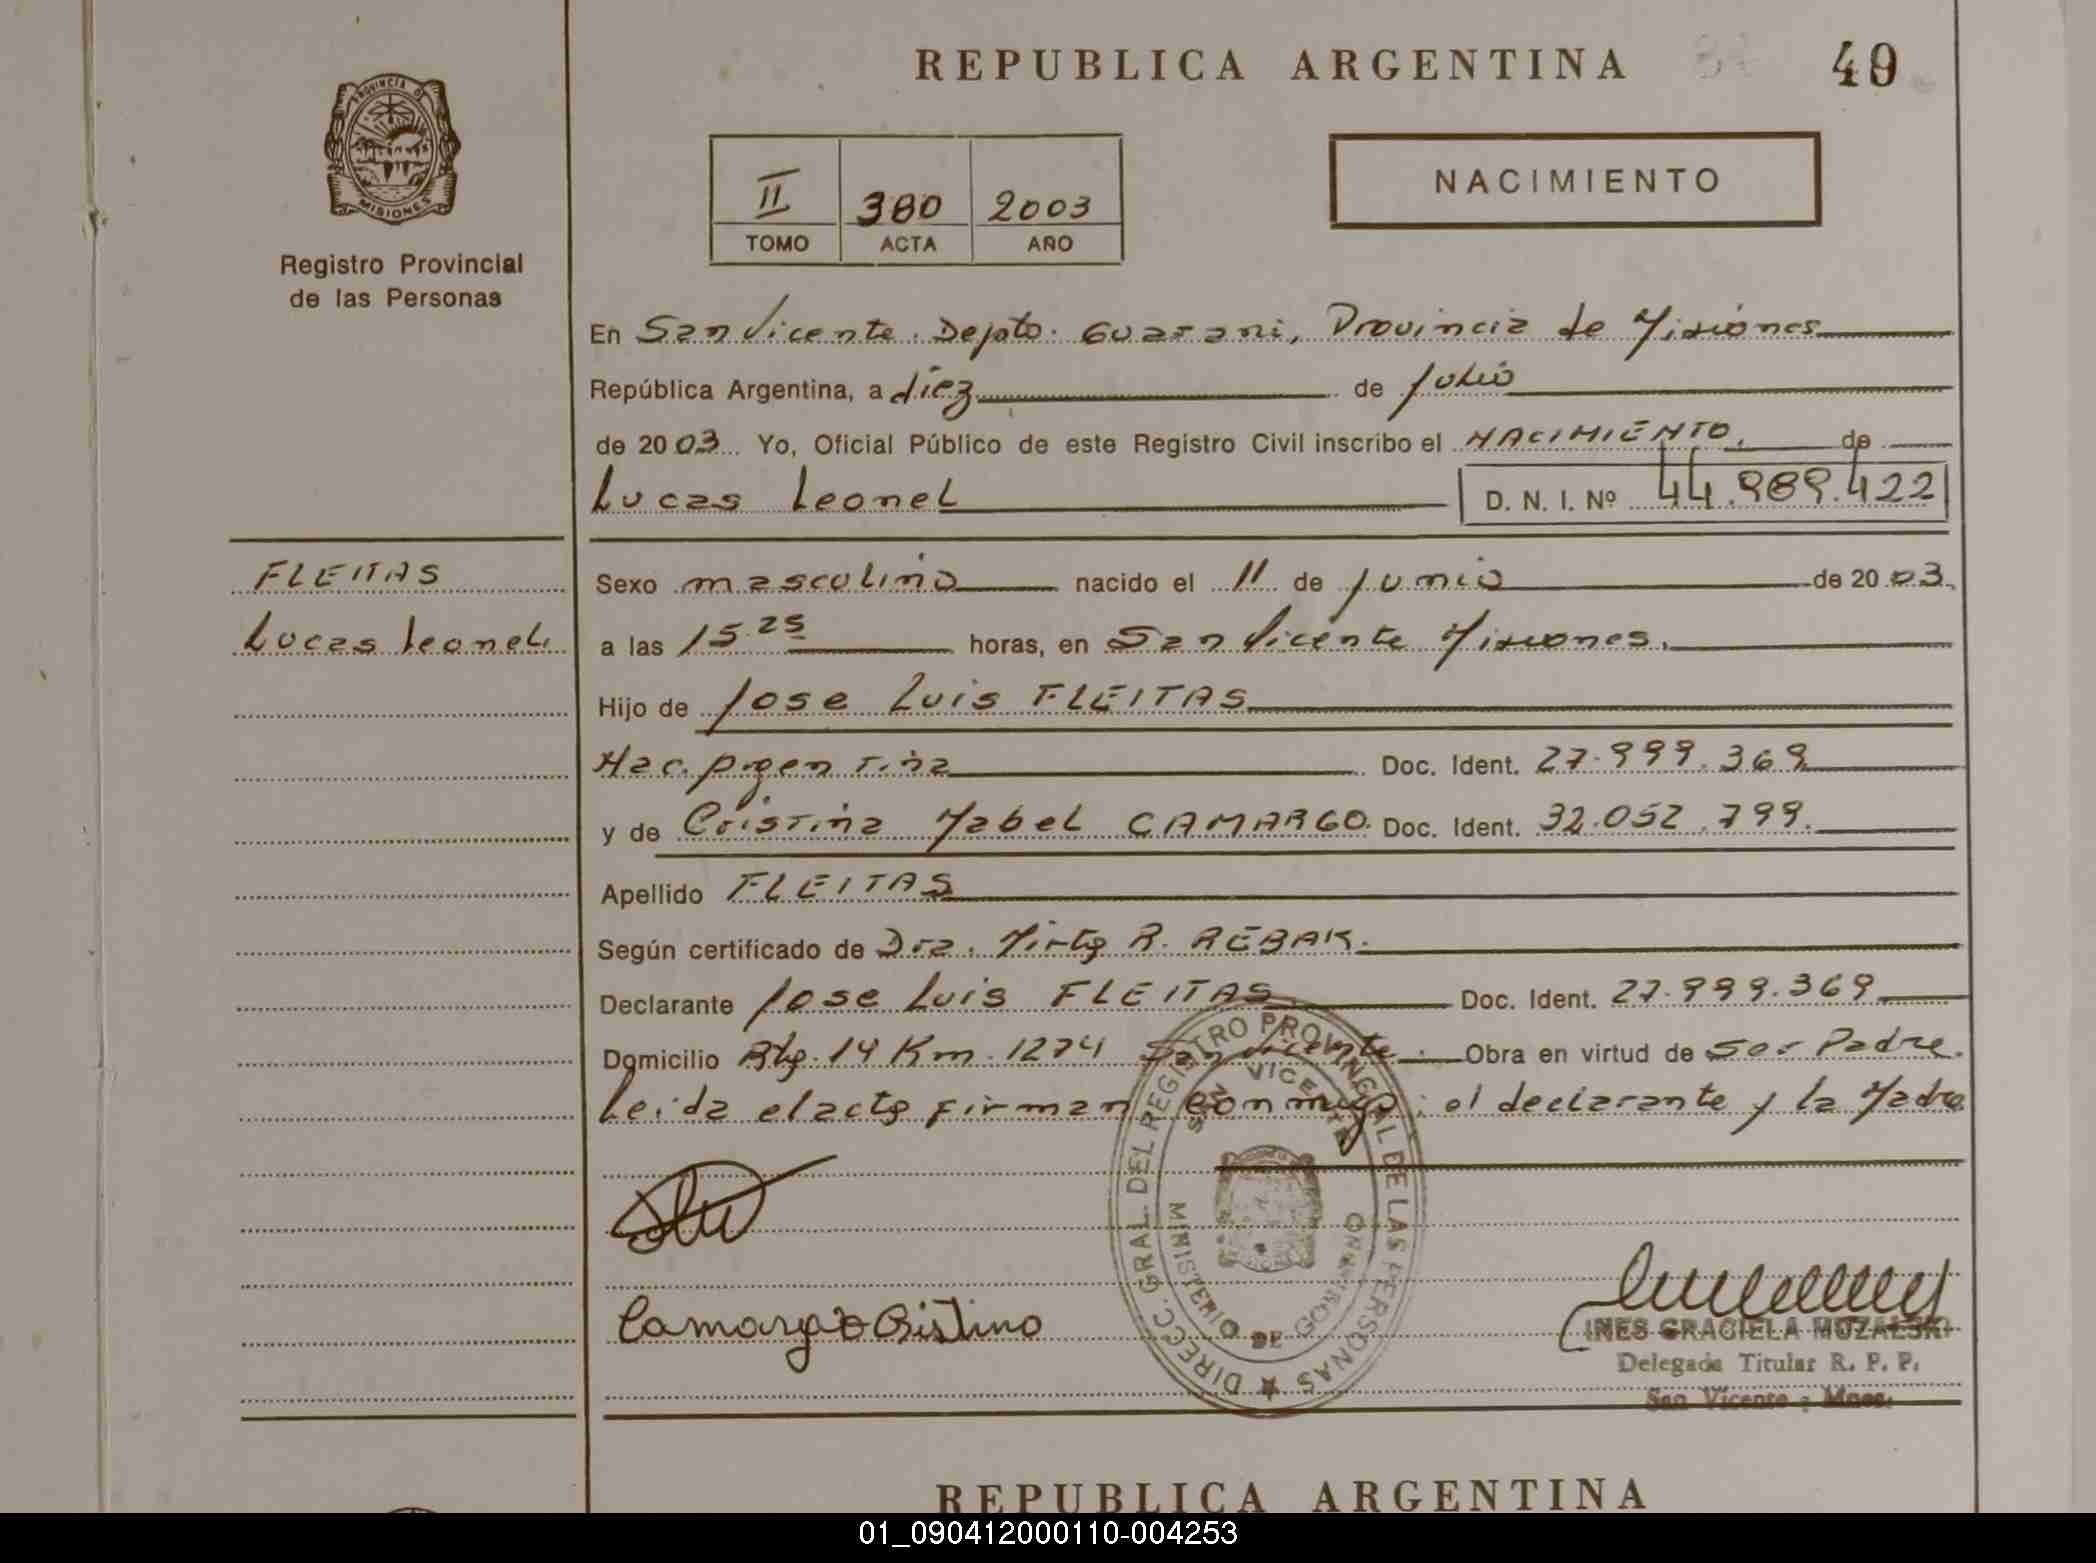 REPUBLICA ARGENTINA
49
PROVINCIA DE
MISIONES
Registro Provincial
de las Personas
II 380 2003
TOMO ACTA AÑO
NACIMIENTO
En San Vicente. Depto. Guarani, Provincia de Misiones
República Argentina, a diez de Julio
de 2003 Yo, Oficial Público de este Registro Civil inscribo el NACIMIENTO, de
Lucas Leonel
D. N. I. Nº 44.989.422
FLEITAS
Lucas Leonel
Sexo masculino nacido el 11 de Junio de 2003
a las 15.25 horas, en San Vicente Misiones.
Hijo de Jose Luis FLEITAS
Nac. Argentina Doc. Ident. 27.999.369
y de Cristina Mabel CAMARGO. Doc. Ident. 32.052.799.
Apellido FLEITAS
Según certificado de Dra. Mirta R. REBAK.
Declarante Jose Luis FLEITAS Doc. Ident. 27.999.369
Domicilio Rta. 14 Km. 1274 San Vicente. Obra en virtud de ser Padre.
Leida el acta firman conmigo: el declarante y la Madre
DIRECC. GRAL. DEL REGISTRO PROVINCIAL DE LAS PERSONAS
SAN VICENTE
MINISTERIO DE GOBIERNO
Camargo Cristina
INES GRACIELA MOZALSKI
Delegada Titular R. P. P.
San Vicente - Mnes.
REPUBLICA ARGENTINA
01_090412000110-004253